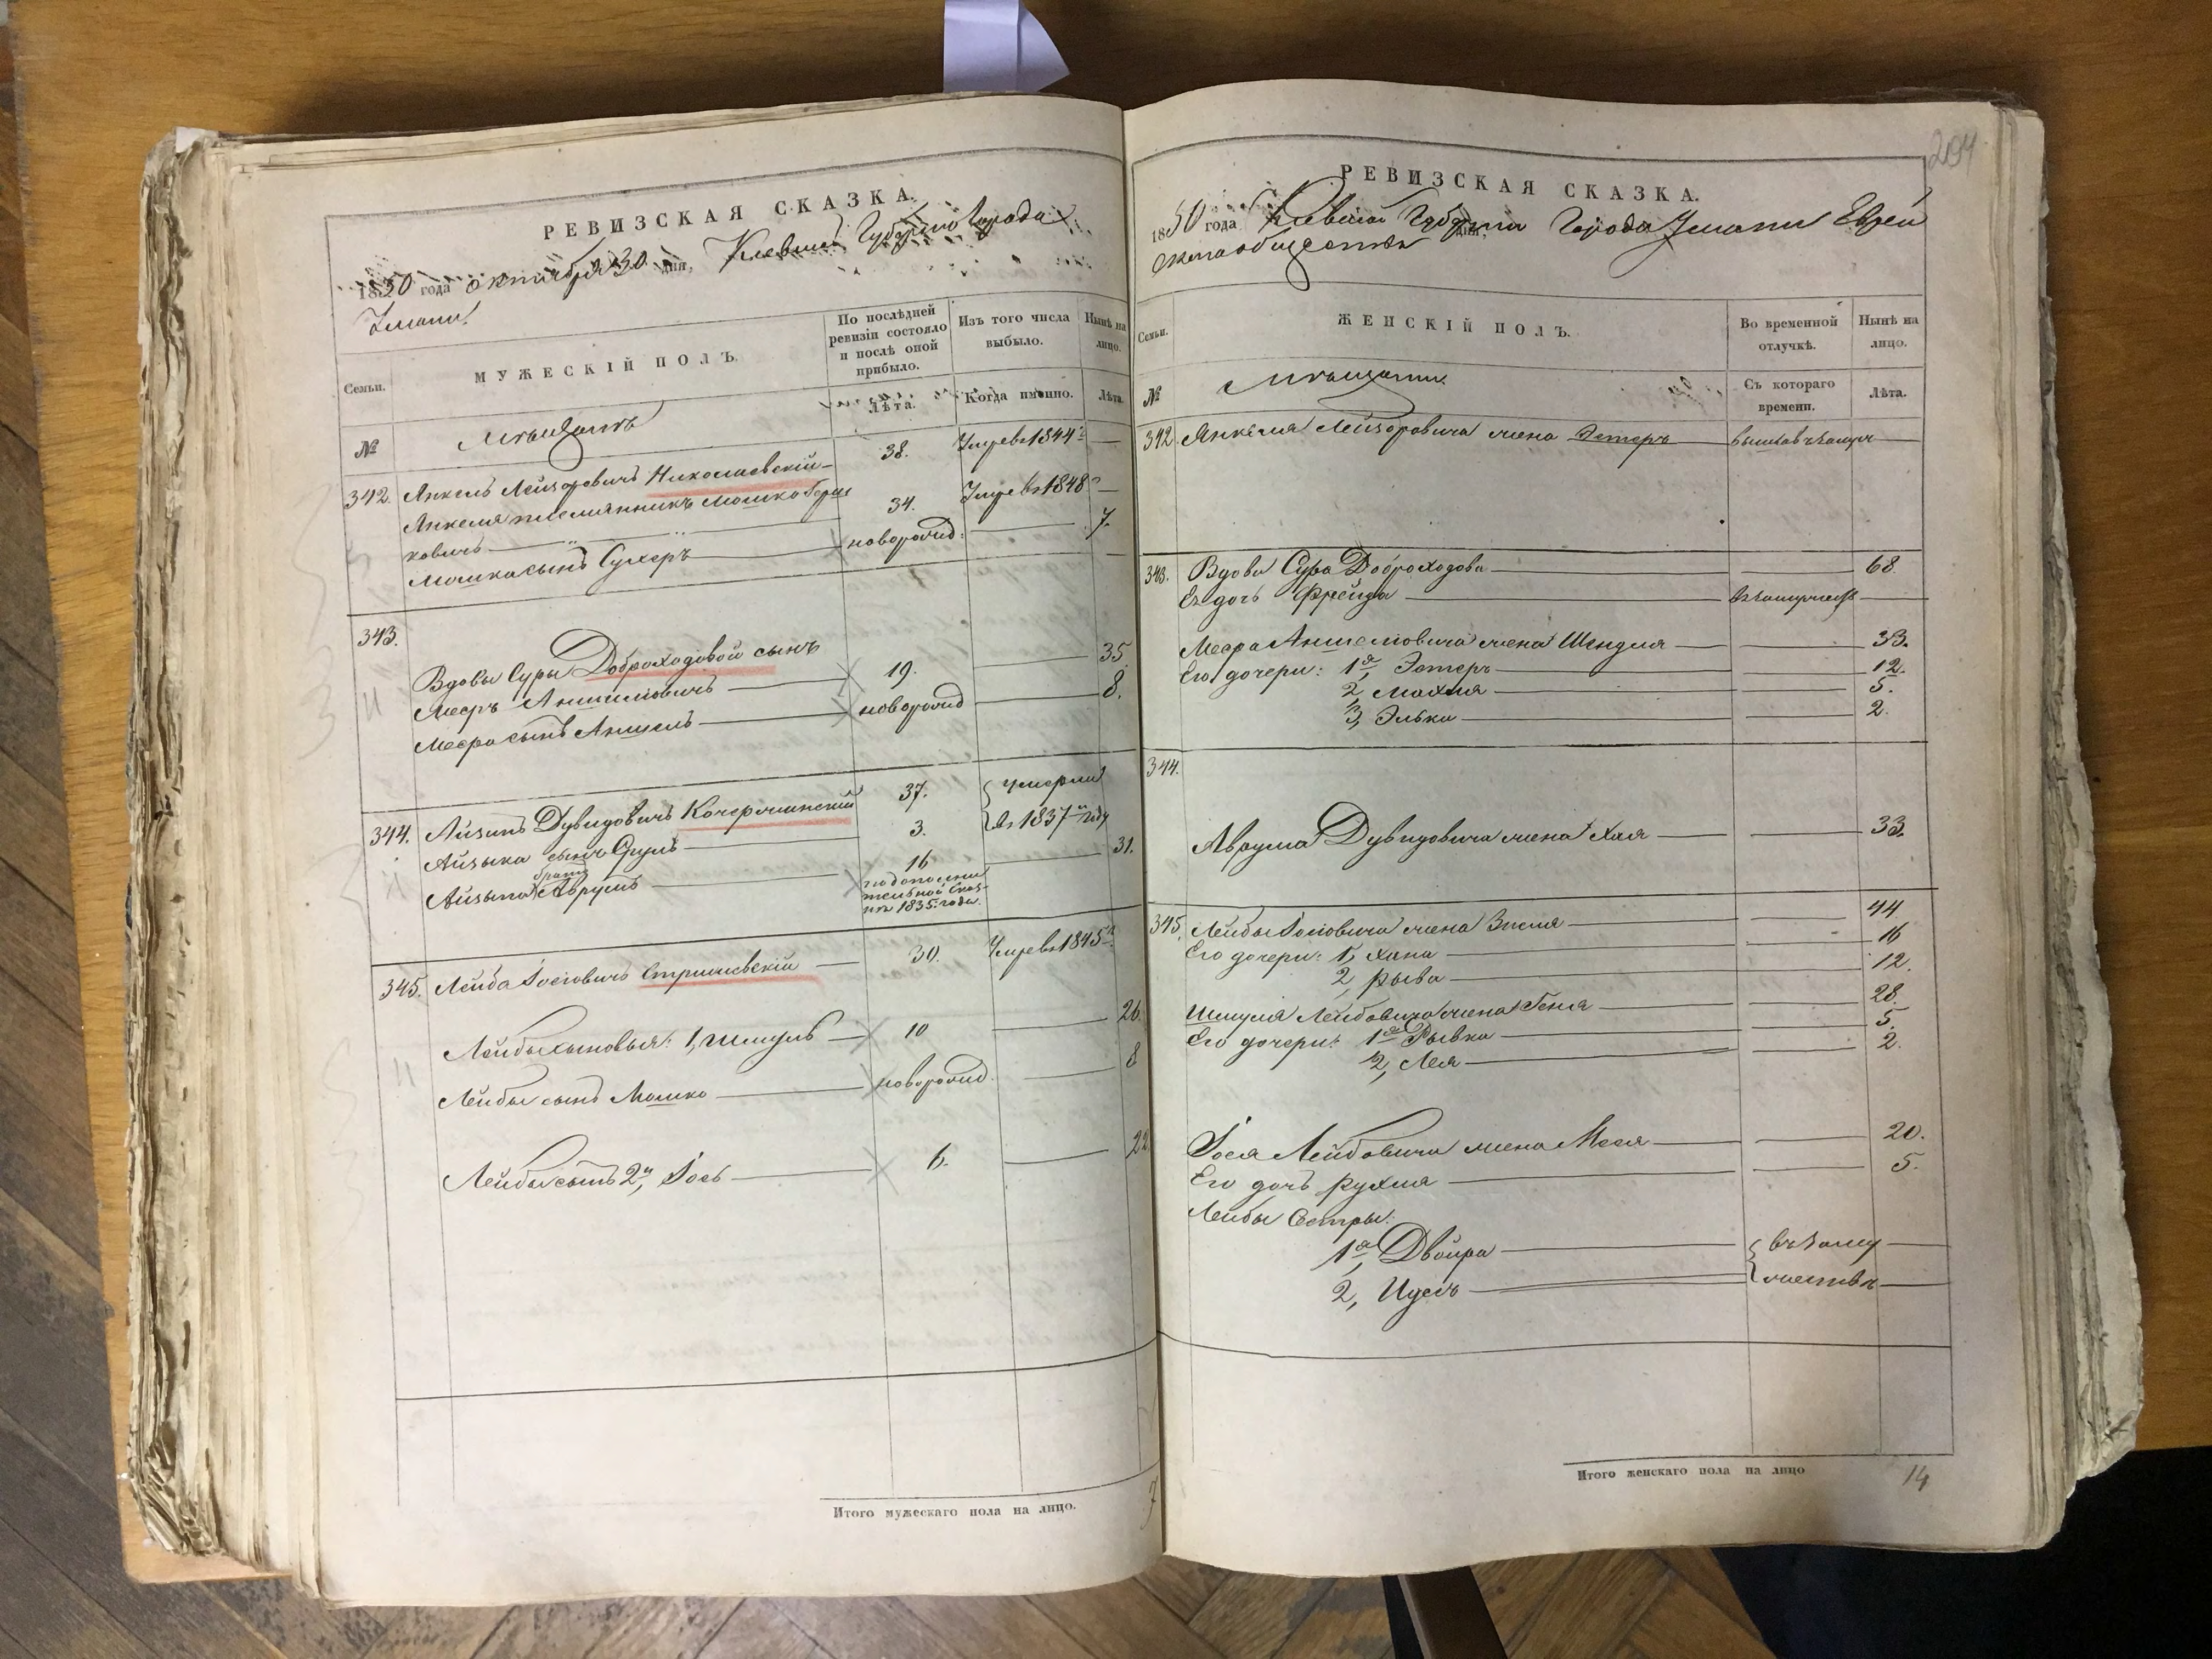 РЕВИЗСКАЯ СКАЗКА.
1850 года октября 30 дня, Киевской Губернии Города
Умани
Семьи.
МУЖЕСКІЙ ПОЛЪ.
По послѣдней ревизіи состояло и послѣ оной прибыло.
Изъ того числа выбыло.
Нынѣ на лицо.
№
Мѣщанъ
Лѣта.
Когда именно.
Лѣта.
342. Янкель Лейзоровичъ Николаевскій 38. Умре въ 1844 г. —
Янкеля племянникъ Мошко Берш
ковичъ 34. Умре въ 1848 г. —
Мошка сынъ Сухеръ новорожд: 7.
343.
Вдовы Суры Доброходовой сынъ
Мееръ Аншиловичъ 19. 35.
Меера сынъ Аншель новорожд 8.
344. Айзикъ Дувидовичъ Кочержинскій 37. Умерли
Айзыка сынъ Сруль 3. въ 1837 м году
братъ
Айзыка Аврумъ 16 31.
по дополни
тельной Сказ-
кѣ 1835. года.
345. Лейба Іосіовичъ Стришевскій 30. Умре въ 1845 г.
Лейбы сыновья: 1, Шмуль 10 26.
Лейбы сынъ Мошко новорожд. 8
Лейбы сынъ 2й, Іось 6. 22
Итого мужескаго пола на лицо. 7
204
РЕВИЗСКАЯ СКАЗКА.
1850 года Киевской Губерніи дня, Города Умани Еврей
скаго общества
Семьи.
ЖЕНСКІЙ ПОЛЪ.
Во временной отлучкѣ.
Нынѣ на лицо.
№
Мѣщанъ
Съ котораго времени.
Лѣта.
342. Янкеля Лейзоровича жена Эстеръ
343. Вдова Сура Доброходова 68.
Ея дочь Фрейда въ замужеств
Меера Аншеловича жена Шендля 33.
Его дочери: 1я, Эстеръ 12.
2, Махля 5.
3, Элька 2.
344.
Аврума Дувидовича жена Хая 33.
345. Лейбы Іосіовича жена Зисля 44
Его дочери: 1, Хана 16
2, Рыва 12.
Шмуля Лейбовича жена Геня 28.
Его дочери: 1я Рывка 5.
2, Лея 2.
Іося Лейбовича жена Меся 20.
Его дочь Рухля 5.
Лейбы Сестры:
1я, Двойра въ заму
2, Идесъ жествѣ
Итого женскаго пола на лицо 14